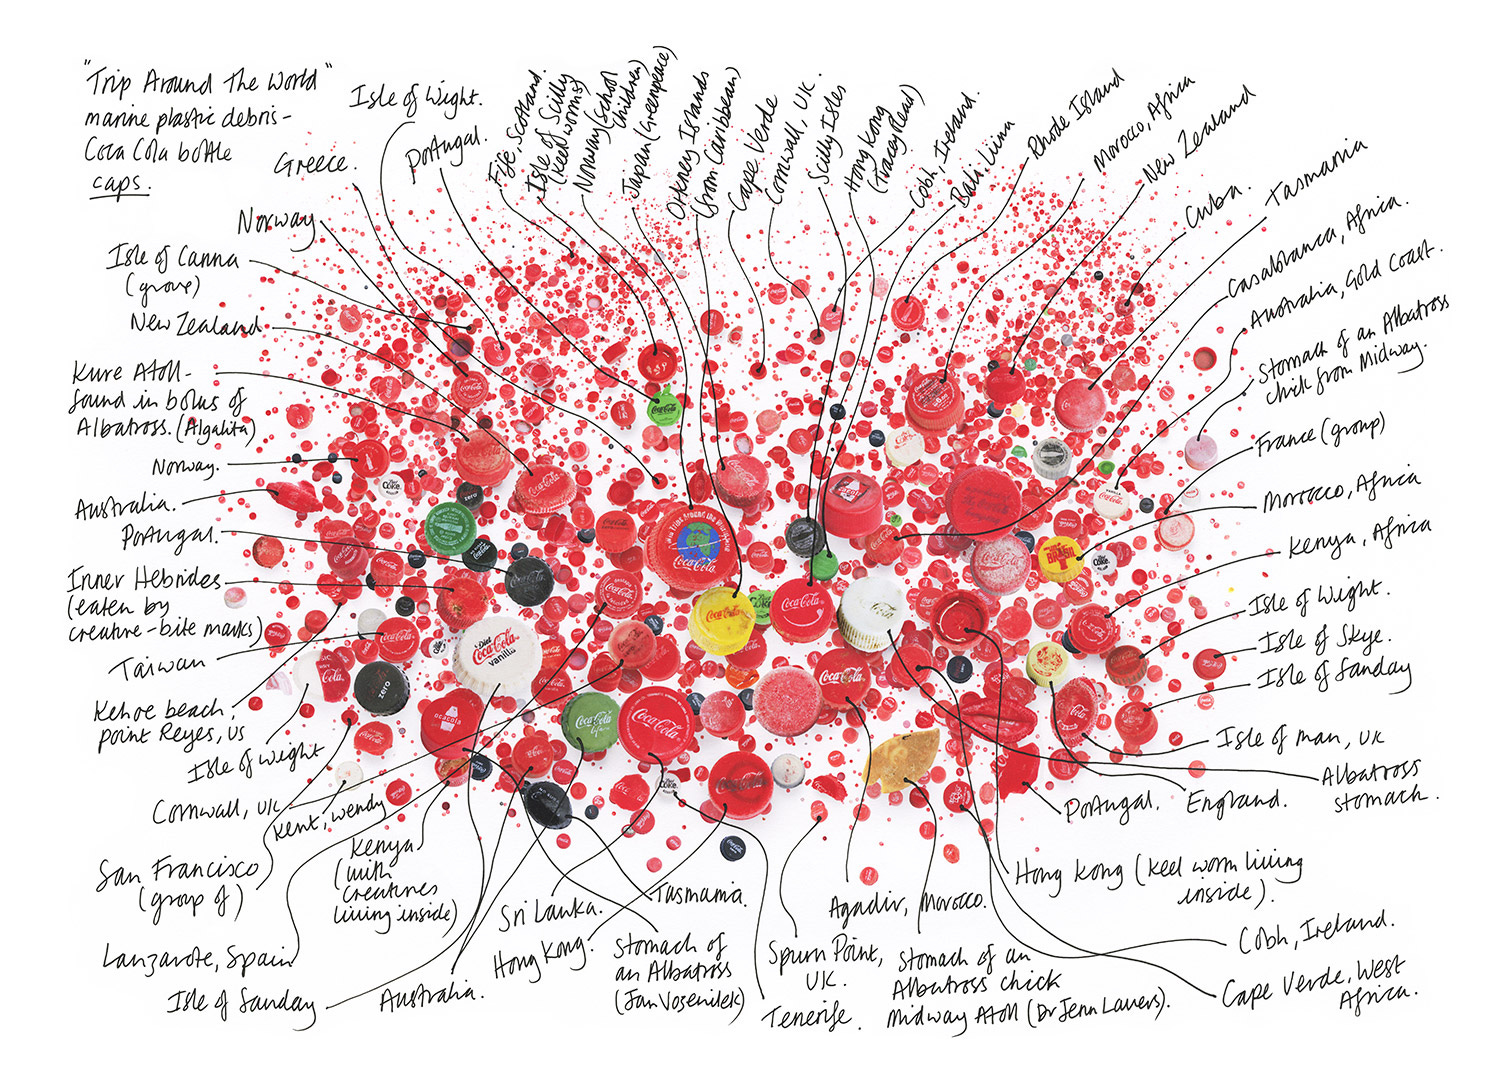 "Trip Around The World"
marine plastic debris-
Coca Cola bottle
caps.
Isle of Wight.
Greece.
Portugal.
Norway
Isle of Canna
(group)
New Zealand
Kure Atoll-
found in bolus of
Albatross. (Algalita)
Norway.
Australia.
Portugal.
Inner Hebrides
(eaten by
creature-bite marks)
Taiwan
Kehoe beach,
point Reyes, US
Isle of Wight
Cornwall, UK
Kent, Wendy
San Francisco
(group of)
Kenya
(with
creatures
living inside)
Lanzarote, Spain
Isle of Sanday
Australia.
Sri Lanka.
Hong Kong.
Tasmania.
Stomach of
an Albatross
(Jan Vosenilek)
Tenerife.
Spurn Point,
UK.
Agadir, Morocco.
Stomach of an
Albatross chick
Midway Atoll (Dr Jenn Lavers).
Fife, Scotland.
Isle of Scilly
(keel worms)
Norway (school
children)
Japan (Greenpeace)
Orkney Islands
(from Caribbean)
Cape Verde
Cornwall, UK.
Scilly Isles
Hong Kong
(Tracey Read)
Cobh, Ireland.
Bali, Liina
Rhode Island
Morocco, Africa
New Zealand
Cuba.
Tasmania
Casablanca, Africa.
Australia, Gold Coast.
Stomach of an Albatross
chick from Midway.
France (group)
Morocco, Africa
Kenya, Africa
Isle of Wight.
Isle of Skye.
Isle of Sanday
Isle of Man, UK
Albatross
stomach.
England.
Portugal.
Hong Kong (keel worm living
inside).
Cobh, Ireland.
Cape Verde, West
Africa.
Coca-Cola
Diet
Coca-Cola
vanilla
zero
Coca-Cola
life
Coca-Cola
Coke
BRASIL